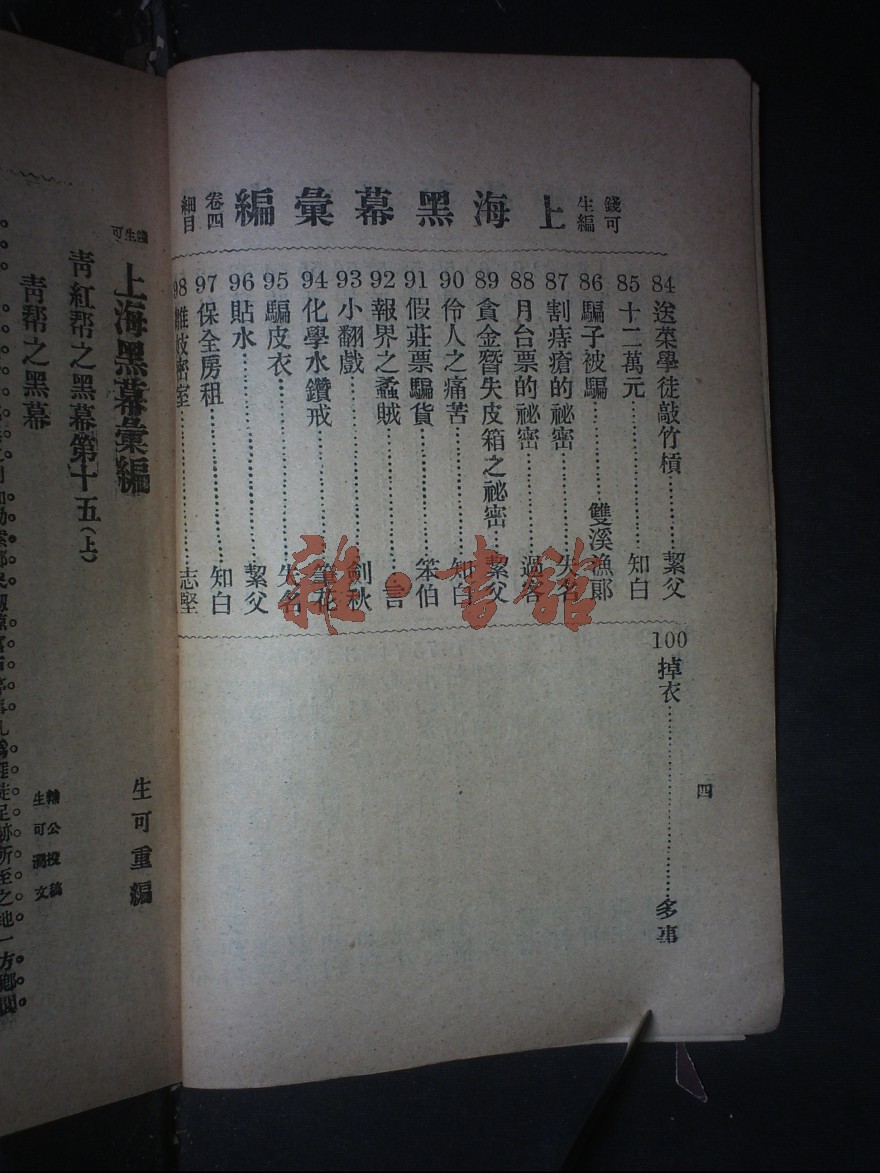 錢可生編 上海黑幕彙編 卷四細目
84 送菜學徒敲竹槓……絜父
85 十二萬元……知白
86 騙子被騙……雙溪漁郎
87 割痔瘡的祕密……失名
88 月台票的祕密……過客
89 貪金簪失皮箱之祕密……絜父
90 伶人之痛苦……知白
91 假莊票騙貨……笨伯
92 報界之蟊賊……言
93 小翻戲……劍秋
94 化學水鑽戒……筆花
95 騙皮衣……失名
96 貼水……絜父
97 保全房租……知白
98 雛妓密室……志堅
100 掉衣……多事
四
上海黑幕彙編
生可重編
青紅帮之黑幕第十五(上)
青帮之黑幕
輔公投稿
生可潤文
足跡所至之地一方鄉閭
雜·書館